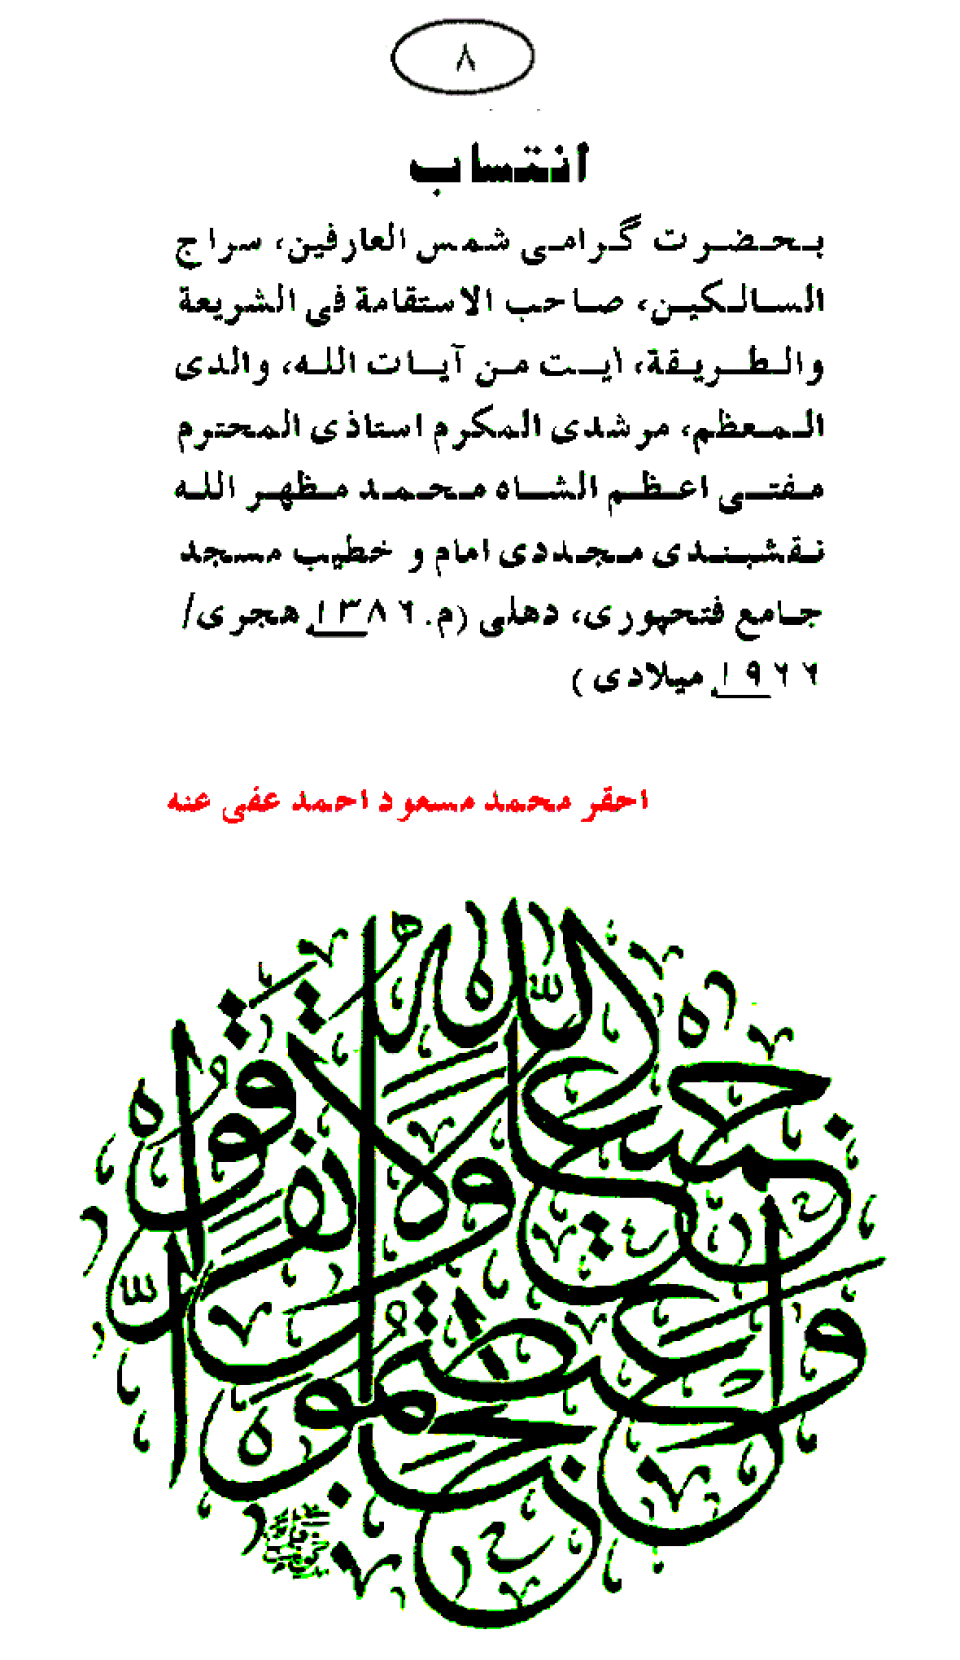 ۸
انتساب
بحضرت گرامی شمس العارفین، سراج
السالکین، صاحب الاستقامة فی الشریعة
والطریقة، آیت من آیات الله، والدی
المعظم، مرشدی المکرم استاذی المحترم
مفتی اعظم الشاه محمد مظهر الله
نقشبندی مجددی امام و خطیب مسجد
جامع فتحپوری، دهلی (م. ۱۳۸۶ هجری/
۱۹۶۶ میلادی)
احقر محمد مسعود احمد عفی عنه
واعتصموا بحبل الله جميعا ولا تفرقوا